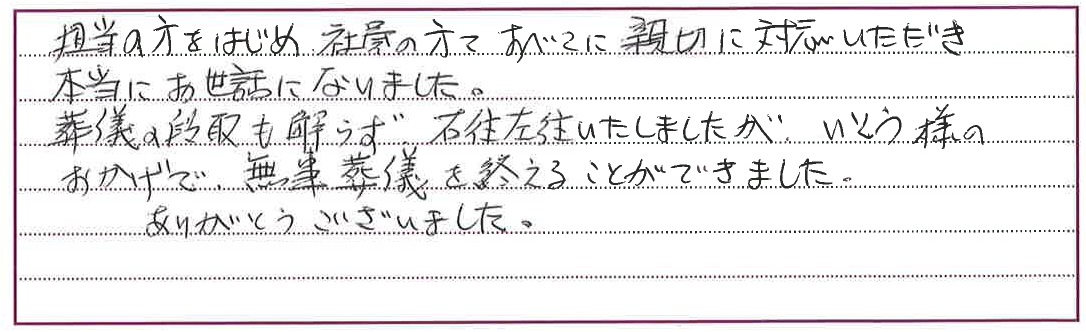 担当の方をはじめ 社員の方て すべてに 親切に 対応いただき
本当に お世話に なりました。
葬儀の段取も解らず 右往左往いたしましたが、いとう様の
おかげで、無事 葬儀を終えることができました。
ありがとうございました。